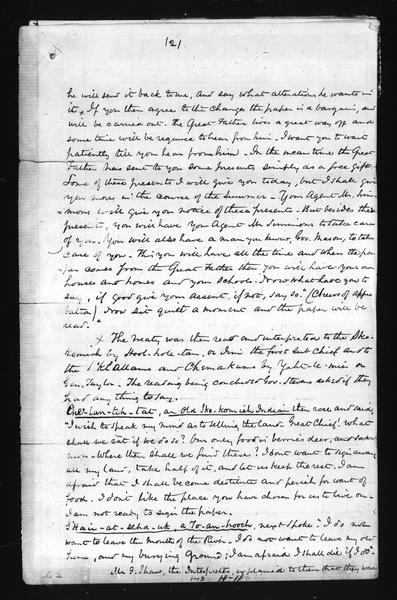 12)
he will send it back to me, and say what alterations he wants in
it. If you then agree to the change the paper is a bargain, and
will be carried out. The Great Father lives a great way off and
some time will be required to hear from him. I want you to wait
patiently till you hear from him. In the mean time the Great
Father has sent to you some presents simply as a free gift.
Some of these presents I will give you today, but I shall give
you more in the course of the summer. Your Agent Mr. Sim-
mons will give you notice of these presents. But besides these
presents, you will have your Agent Mr Simmons to take care
of you. You will also have a man you know, Gov. Mason, to take
care of you. This you will have all the time and when the pa-
per comes from the Great Father then you will have your own
houses and homes and your schools. Now what have you to
say, if good give your assent, if not, say so. (Cheers of appro
bation) Now sit quiet a moment and the paper will be
read."
x The treaty was then read and interpreted to the Sko-
komish by Hool-hole-tan, or Jim the first sub Chief and to
the S'Klallams and Chemakums by Yaht-le-min or
Gen. Taylor. The reading being concluded Gov. Stevens asked if they
had any thing to say.
Che-lan-teh-tat, an old Sko-komish Indian then rose and said,
"I wish to speak my mind as to selling the land. Great Chief! What
shall we eat if we do so? Our only food is berries deer, and sal-
mon. Where then shall we find these? I dont want to sign away
all my land, take half of it, and let us keep the rest. I am
afraid that I shall become destitute and perish for want of
food. I don't like the place you have chosen for us to live on.
I am not ready to sign the paper.
Hair-at-schd-uk, a To-an-hooch, next spoke. I do not
want to leave the mouth of the River. I do not want to leave my old
home, and my burying Ground; I am afraid I shall die if I do".
Mr F. Shaw, the Interpreter, explained to them that they were